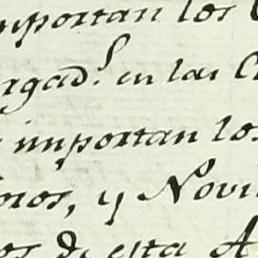 importan los
rgad.s en las C
importan los
oros, y Novi
de esta A